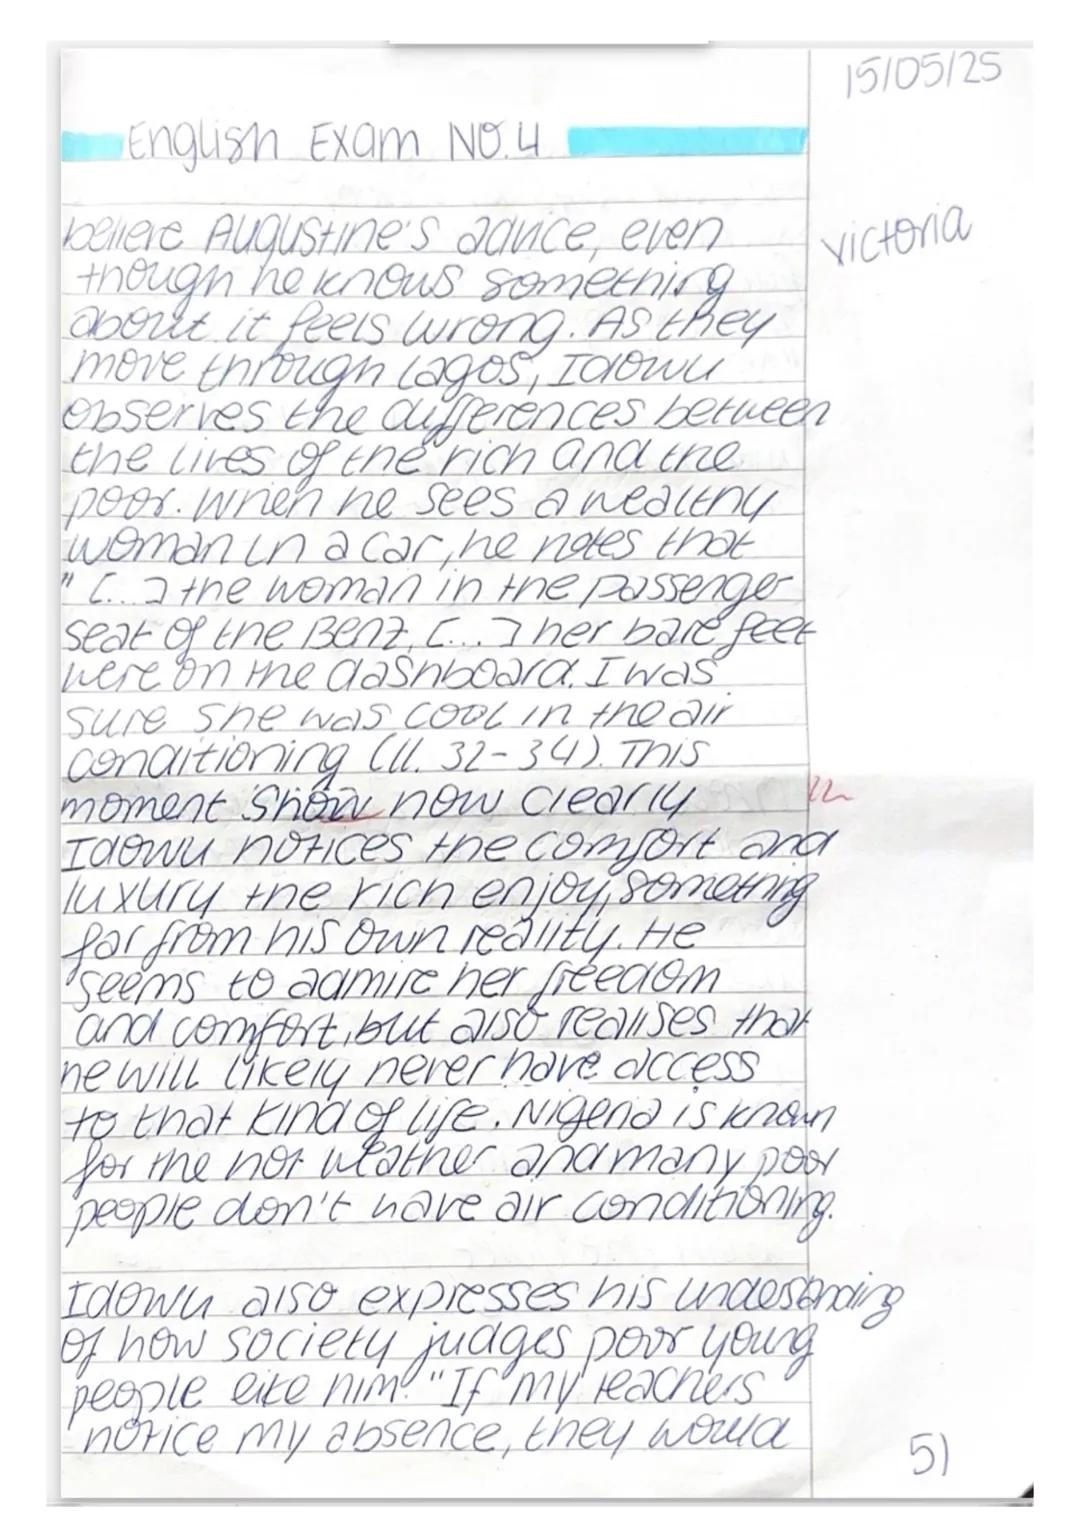 15/05/25
English Exam NO.4
Victoria
believe Augustine's advice, even
though he knows something
about it feels wrong. As they
move through Lagos, Idowu
observes the differences between
the lives of the rich and the
poor. When he sees a wealthy
woman in a car, he notes that
"[...] the woman in the passenger
seat of the Benz, [...] her bare feet
were on the dashboard. I was
sure she was cool in the air
conditioning (ll. 32-34). This
moment show how clearly
Idowu notices the comfort and
luxury the rich enjoy, something
far from his own reality. He
seems to admire her freedom
and comfort, but also realises that
he will likely never have access
to that kind of life. Nigeria is known
for the hot weather and many poor
people don't have air conditioning.
Idowu also expresses his undesanding
of how society judges poor young
people like him. "If my teachers
notice my absence, they would
5)